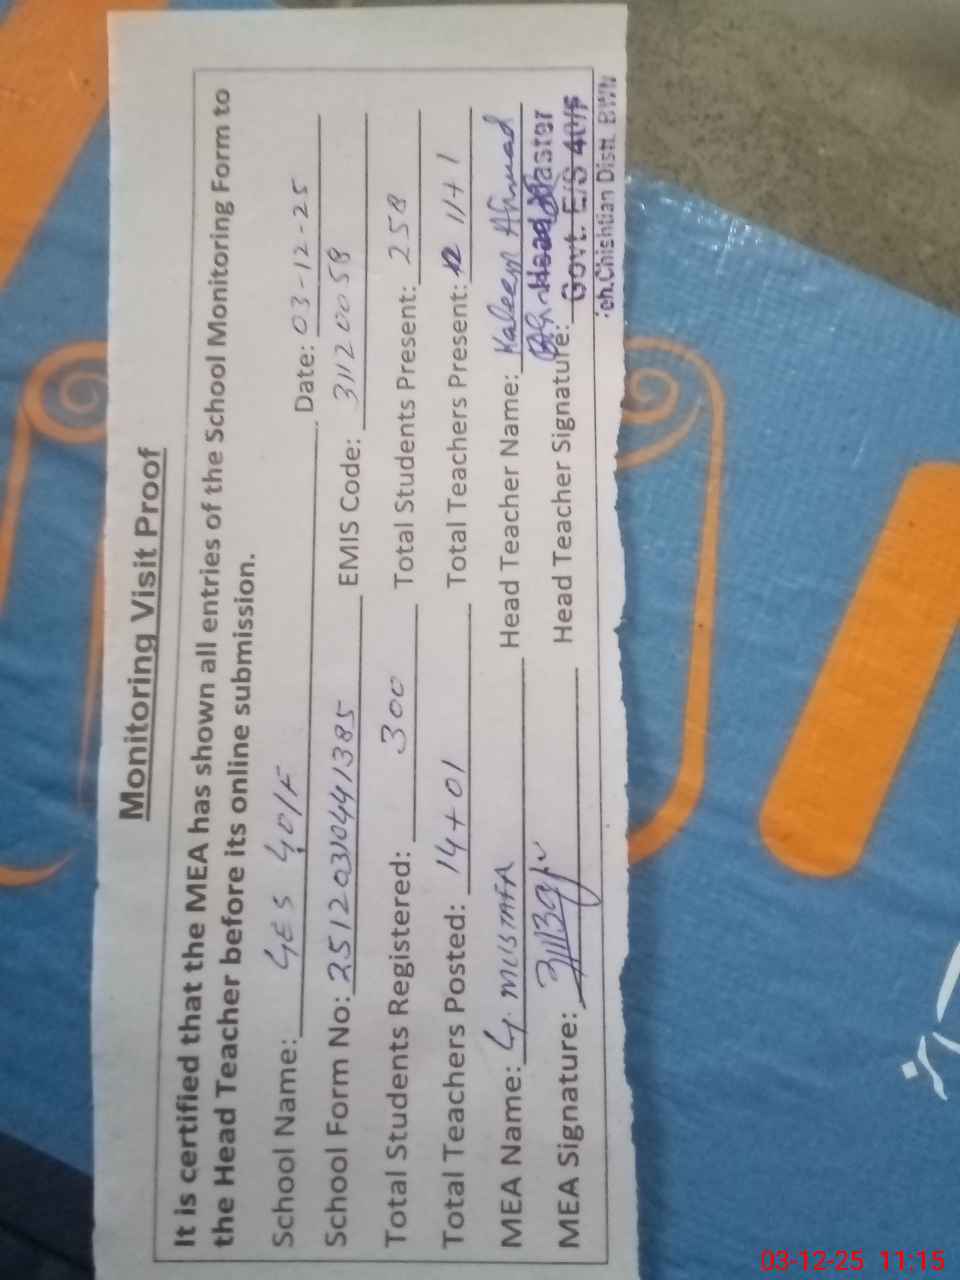 Monitoring Visit Proof
It is certified that the MEA has shown all entries of the School Monitoring Form to
the Head Teacher before its online submission.
School Name: GES 40/F Date: 03-12-25
School Form No: 25120310441385 EMIS Code: 31120058
Total Students Registered: 300 Total Students Present: 258
Total Teachers Posted: 14+01 Total Teachers Present: 11+1
MEA Name: G. MUSTAFA Head Teacher Name: Kaleem Ahmad
MEA Signature: Head Teacher Signature:
Head Master
Govt. E/S 40/F
Chishtian Distt. BWN
03-12-25 11:15